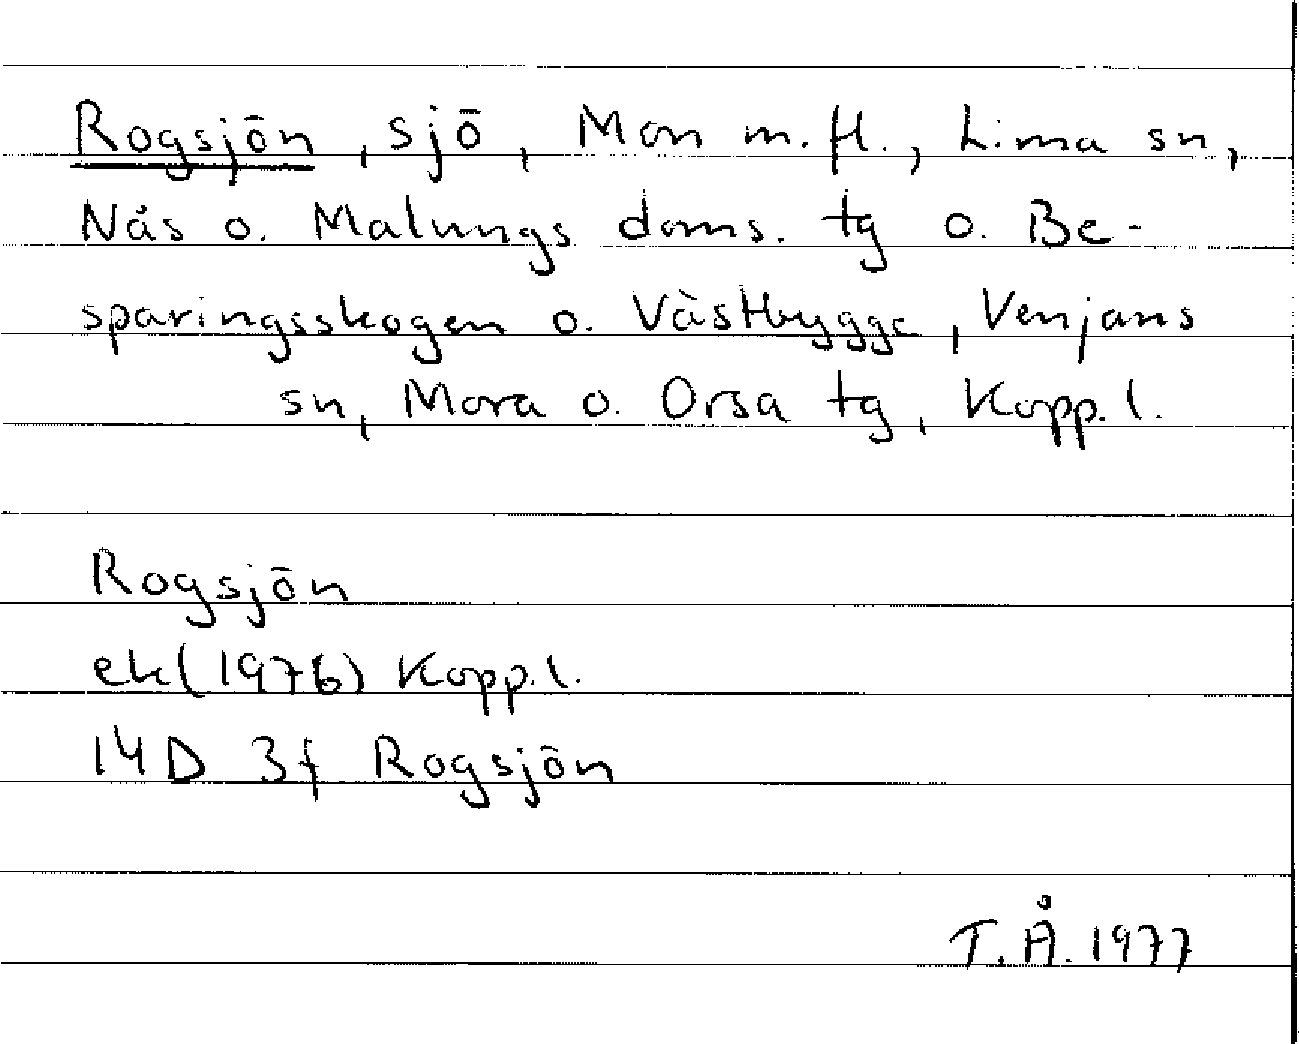 Rogsjön, sjö, Mon m.fl., Lima sn,
Nås o. Malungs doms. tg o. Be-
sparingsskogen o. Västbygge, Venjans
sn, Mora o. Orsa tg, Kopp. l.
Rogsjön
ek(1976) Kopp. l.
14D 3f Rogsjön
T.Å. 1977